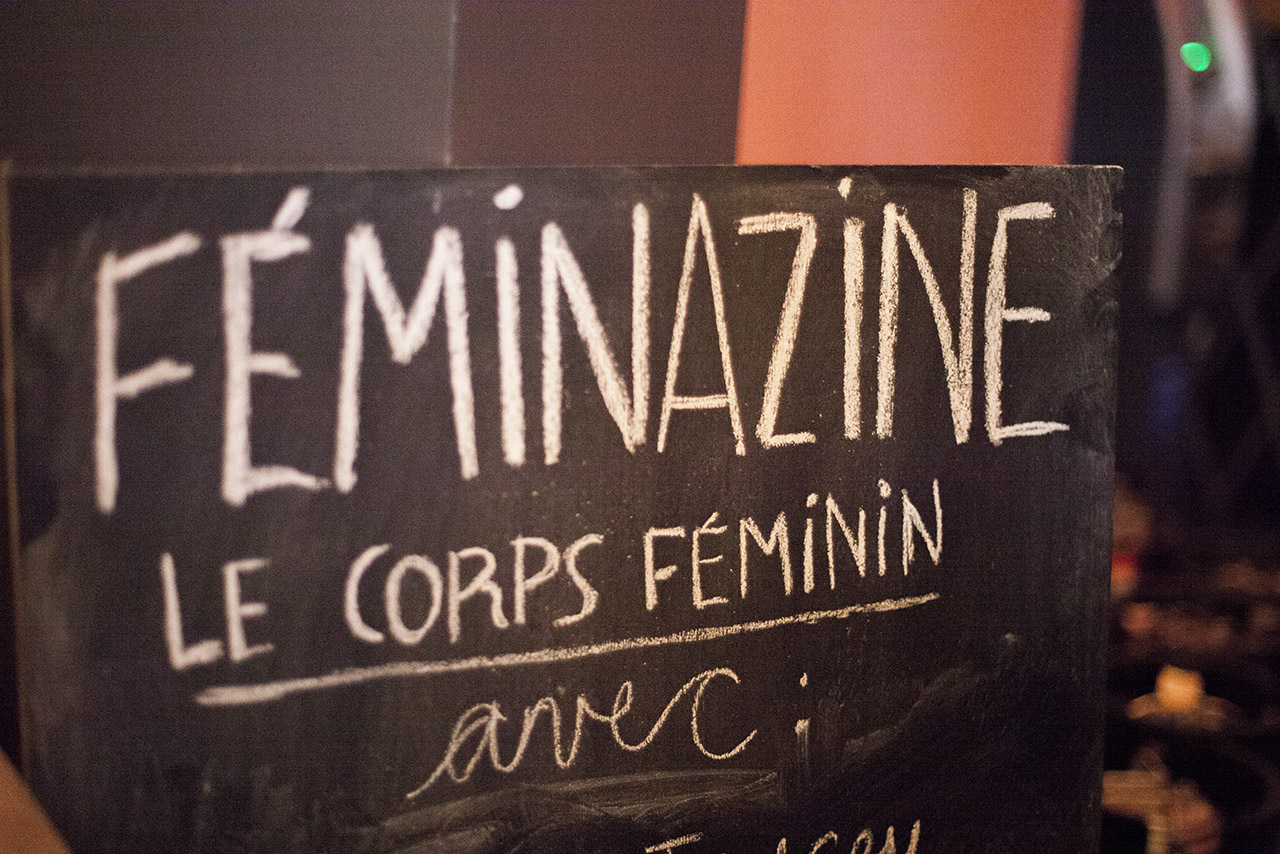 FÉMiNAZiNE
LE CORPS FÉMiNiN
avec :